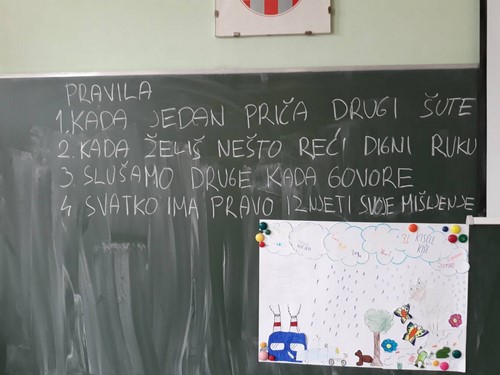 PRAVILA
1. KADA JEDAN PRIČA DRUGI ŠUTE
2. KADA ŽELIŠ NEŠTO REĆI DIGNI RUKU
3. SLUŠAMO DRUGE KADA GOVORE
4. SVATKO IMA PRAVO IZNJETI SVOJE MIŠLJENJE
KISELE
KIŠE